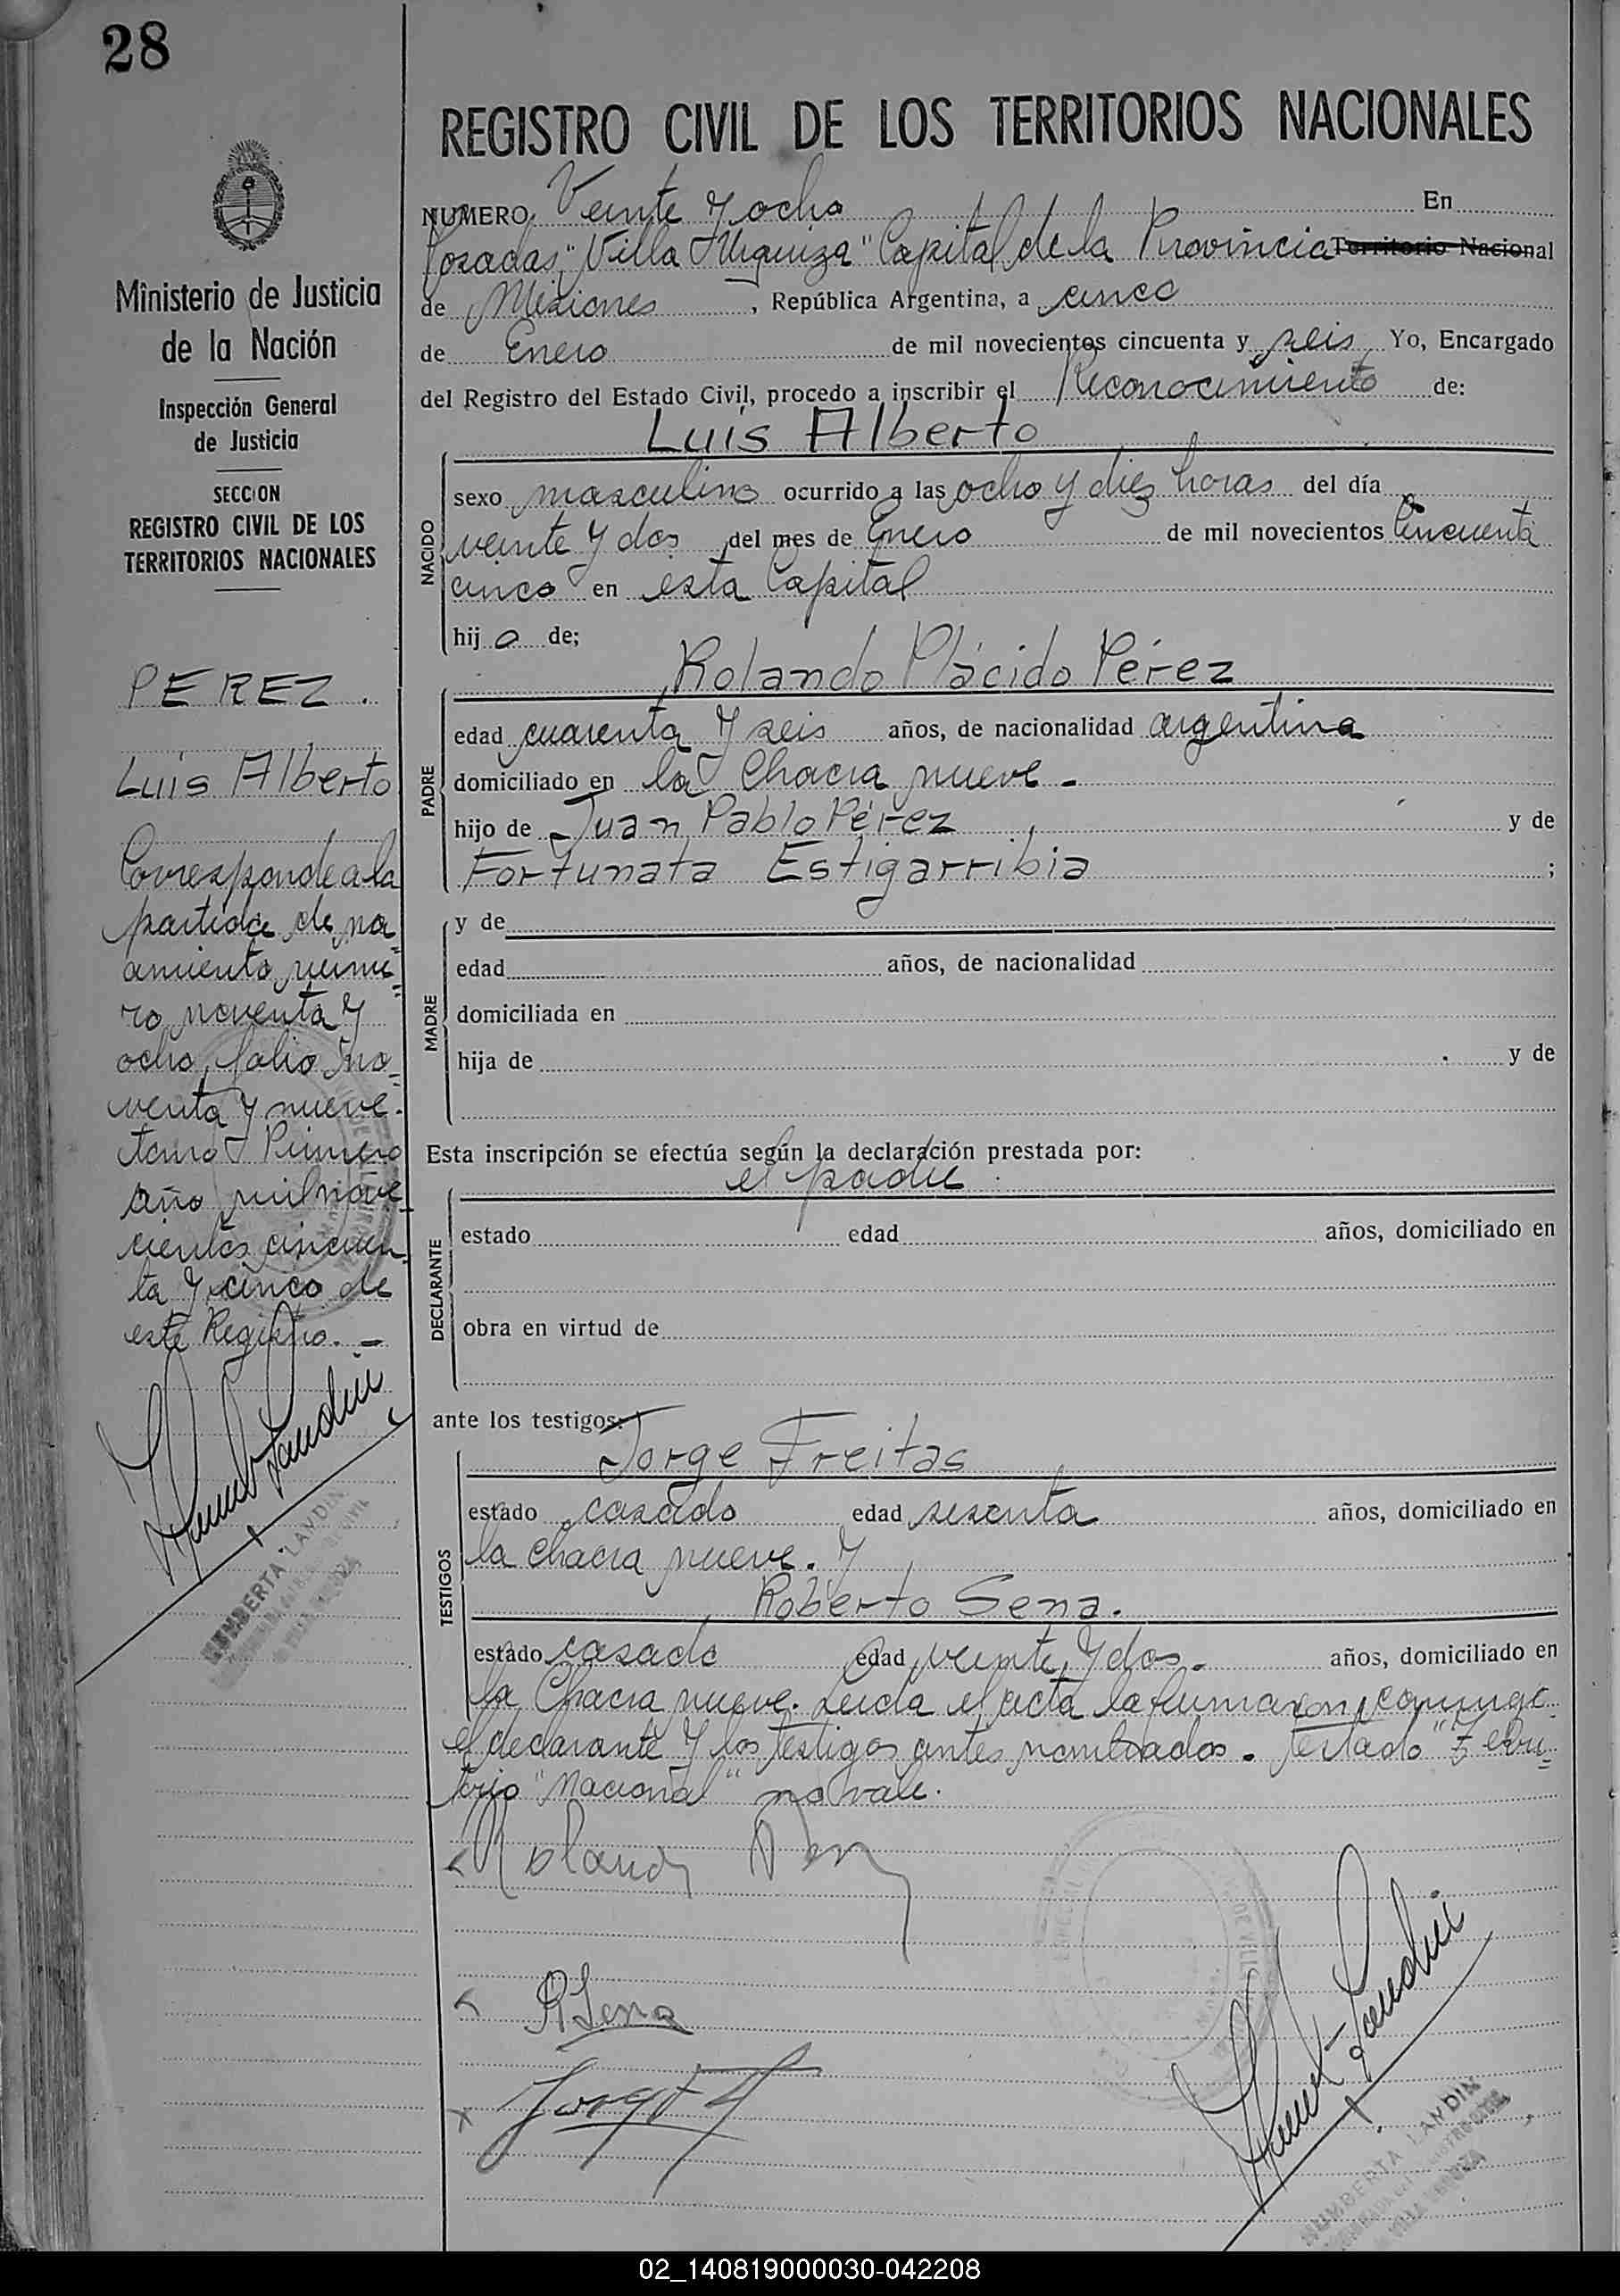 28
REGISTRO CIVIL DE LOS TERRITORIOS NACIONALES
NUMERO Veinte y ocho En
Posadas, "Villa Urquiza" Capital de la Provincia Territorio Nacional
de Misiones, República Argentina, a cinco
de Enero de mil novecientos cincuenta y seis Yo, Encargado
del Registro del Estado Civil, procedo a inscribir el Reconocimiento de:
Luis Alberto
NACIDO
sexo masculino ocurrido a las ocho y diez horas del día
veinte y dos del mes de Enero de mil novecientos cincuenta
cinco en esta Capital
hijo de;
Rolando Plácido Pérez
PADRE
edad cuarenta y seis años, de nacionalidad argentina
domiciliado en la Chacra nueve -
hijo de Juan Pablo Pérez y de
Fortunata Estigarribia ;
MADRE
y de
edad años, de nacionalidad
domiciliada en
hija de y de
Esta inscripción se efectúa según la declaración prestada por:
el padre
DECLARANTE
estado edad años, domiciliado en
obra en virtud de
ante los testigos:
Jorge Freitas
TESTIGOS
estado casado edad sesenta años, domiciliado en
la Chacra nueve. y
Roberto Sena.
estado casado edad veinte y dos. años, domiciliado en
la Chacra nueve. Leida el acta la firmaron conmigo
el declarante y los testigos antes nombrados. Testado "Terri=
torio "Nacional" no vale.
Rolando
R Sena
Ministerio de Justicia
de la Nación
Inspección General
de Justicia
SECCION
REGISTRO CIVIL DE LOS
TERRITORIOS NACIONALES
PEREZ.
Luis Alberto
Corresponde a la
partida de na=
cimiento núme=
ro noventa y
ocho, folio no=
venta y nueve.
tomo Primero
año mil nove=
cientos cincuen=
ta y cinco de
este Registro. -
HUMBERTA LANDIN
HUMBERTA LANDIN
02_140819000030-042208